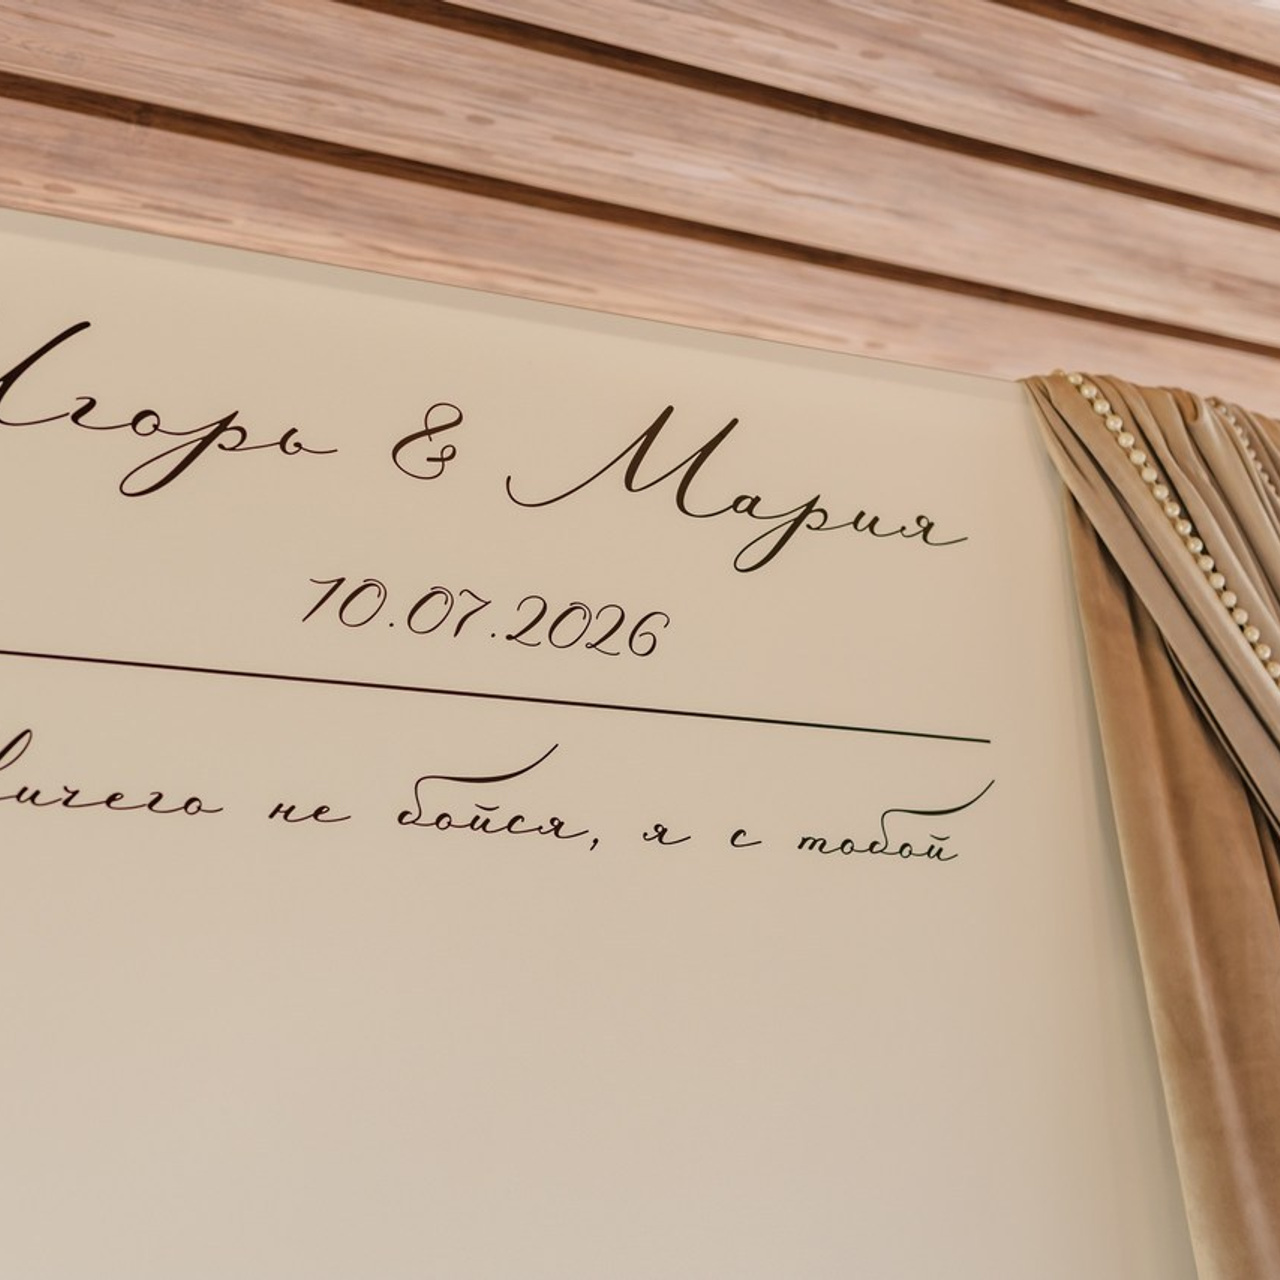 Игорь & Мария
10.07.2026
Ничего не бойся, я с тобой